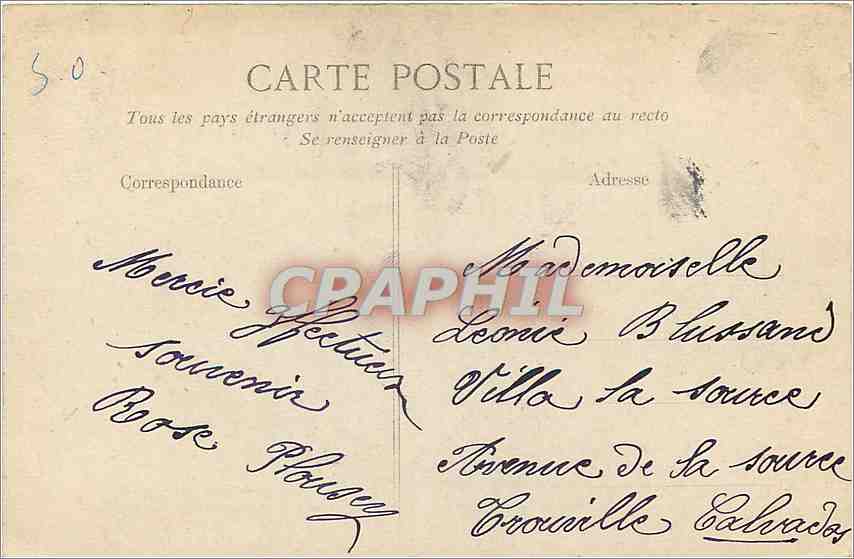 5.0.
CARTE POSTALE
Tous les pays étrangers n'acceptent pas la correspondance au recto
Se renseigner à la Poste
Correspondance
Mercie affectueux
souvenir
Rose Plousey
Adresse
Mademoiselle
Léonie Blussand
Villa la source
Avenue de la source
Trouville Calvados
CPAPHIL